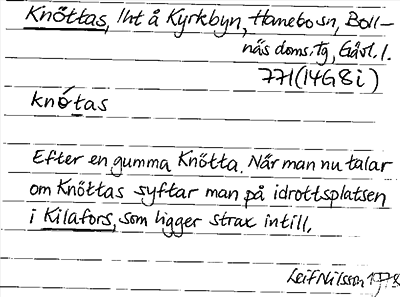 Knöttas, lht å Kyrkbyn, Hanebo sn, Boll-
näs doms. tg, Gävl. l.
771(14G8i)
knö́tas
Efter en gumma Knötta. När man nu talar
om Knöttas syftar man på idrottsplatsen
i Kilafors, som ligger strax intill.
Leif Nilsson 1978